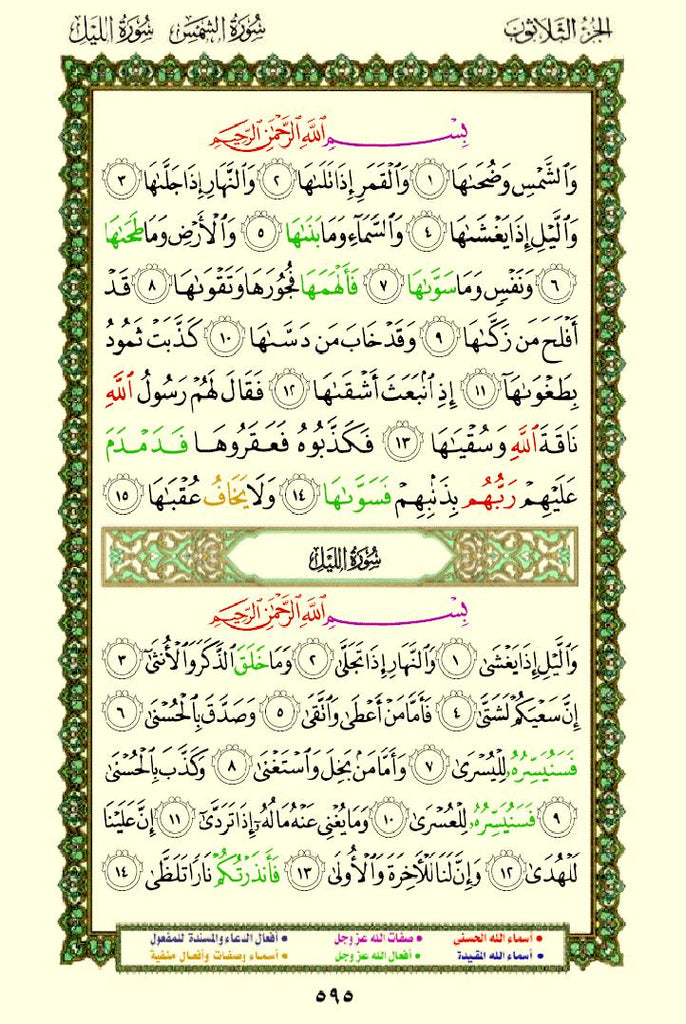 الجزء الثلاثون سورة الشمس سورة الليل
بِسْمِ ٱللَّهِ ٱلرَّحْمَٰنِ ٱلرَّحِيمِ
وَٱلشَّمْسِ وَضُحَىٰهَا ١ وَٱلْقَمَرِ إِذَا تَلَىٰهَا ٢ وَٱلنَّهَارِ إِذَا جَلَّىٰهَا ٣
وَٱلَّيْلِ إِذَا يَغْشَىٰهَا ٤ وَٱلسَّمَآءِ وَمَا بَنَىٰهَا ٥ وَٱلْأَرْضِ وَمَا طَحَىٰهَا
٦ وَنَفْسٍ وَمَا سَوَّىٰهَا ٧ فَأَلْهَمَهَا فُجُورَهَا وَتَقْوَىٰهَا ٨ قَدْ
أَفْلَحَ مَن زَكَّىٰهَا ٩ وَقَدْ خَابَ مَن دَسَّىٰهَا ١٠ كَذَّبَتْ ثَمُودُ
بِطَغْوَىٰهَآ ١١ إِذِ ٱنۢبَعَثَ أَشْقَىٰهَا ١٢ فَقَالَ لَهُمْ رَسُولُ ٱللَّهِ
نَاقَةَ ٱللَّهِ وَسُقْيَٰهَا ١٣ فَكَذَّبُوهُ فَعَقَرُوهَا فَدَمْدَمَ
عَلَيْهِمْ رَبُّهُم بِذَنۢبِهِمْ فَسَوَّىٰهَا ١٤ وَلَا يَخَافُ عُقْبَٰهَا ١٥
سورة الليل
بِسْمِ ٱللَّهِ ٱلرَّحْمَٰنِ ٱلرَّحِيمِ
وَٱلَّيْلِ إِذَا يَغْشَىٰ ١ وَٱلنَّهَارِ إِذَا تَجَلَّىٰ ٢ وَمَا خَلَقَ ٱلذَّكَرَ وَٱلْأُنثَىٰٓ ٣
إِنَّ سَعْيَكُمْ لَشَتَّىٰ ٤ فَأَمَّا مَنْ أَعْطَىٰ وَٱتَّقَىٰ ٥ وَصَدَّقَ بِٱلْحُسْنَىٰ ٦
فَسَنُيَسِّرُهُۥ لِلْيُسْرَىٰ ٧ وَأَمَّا مَنۢ بَخِلَ وَٱسْتَغْنَىٰ ٨ وَكَذَّبَ بِٱلْحُسْنَىٰ
٩ فَسَنُيَسِّرُهُۥ لِلْعُسْرَىٰ ١٠ وَمَا يُغْنِى عَنْهُ مَالُهُۥٓ إِذَا تَرَدَّىٰٓ ١١ إِنَّ عَلَيْنَا
لَلْهُدَىٰ ١٢ وَإِنَّ لَنَا لَلْءَاخِرَةَ وَٱلْأُولَىٰ ١٣ فَأَنذَرْتُكُمْ نَارًا تَلَظَّىٰ ١٤
• أسماء الله الحسنى • صفات الله عز وجل • أفعال الدعاء والمسندة للمفعول
• أسماء الله المقيدة • أفعال الله عز وجل • أسماء وصفات وأفعال منفية
٥٩٥